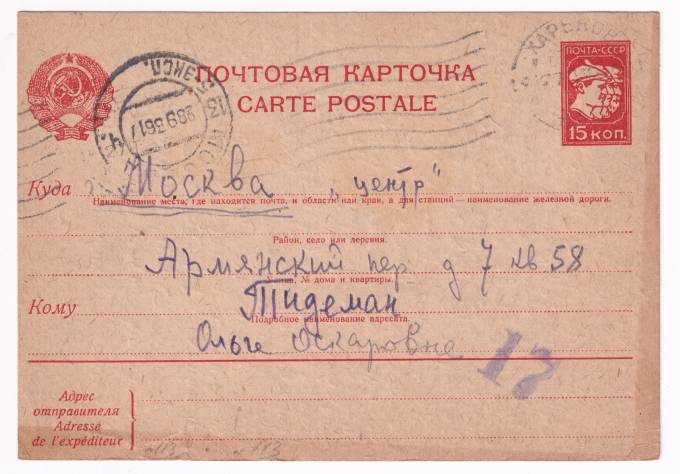 ПОЧТОВАЯ КАРТОЧКА
CARTE POSTALE
ПОЧТА-СССР
15 КОП.
Куда Москва „центр"
Наименование места, где находится почта, и области или края, а для станций - наименование железной дороги.
Район, село или деревня.
Армянский пер. д 7 кв 58
Улица, № дома и квартиры.
Кому Тидеман
Подробное наименование адресата.
Ольге Оскаровна
17
Адрес
отправителя
Adresse
de l'expéditeur